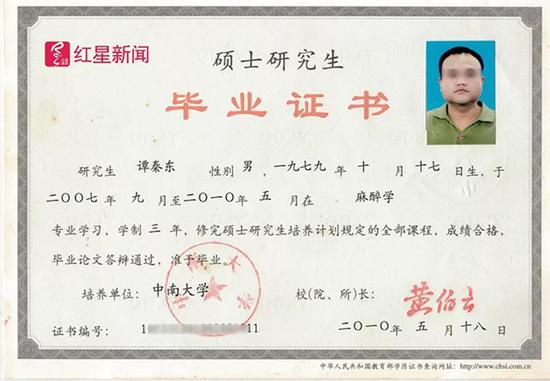 红星新闻
硕士研究生
毕业证书
研究生 谭秦东 性别 男，一九七九 年 十 月 十七 日生，于
二〇〇七 年 九 月至二〇一〇 年 五 月在 麻醉学
专业学习，学制 三 年，修完硕士研究生培养计划规定的全部课程，成绩合格，
毕业论文答辩通过，准予毕业。
培养单位：中南大学 校(院、所)长：黄伯云
证书编号：1 11 二〇一〇 年 五 月 十八 日
中华人民共和国教育部学历证书查询网址：http://www.chsi.com.cn